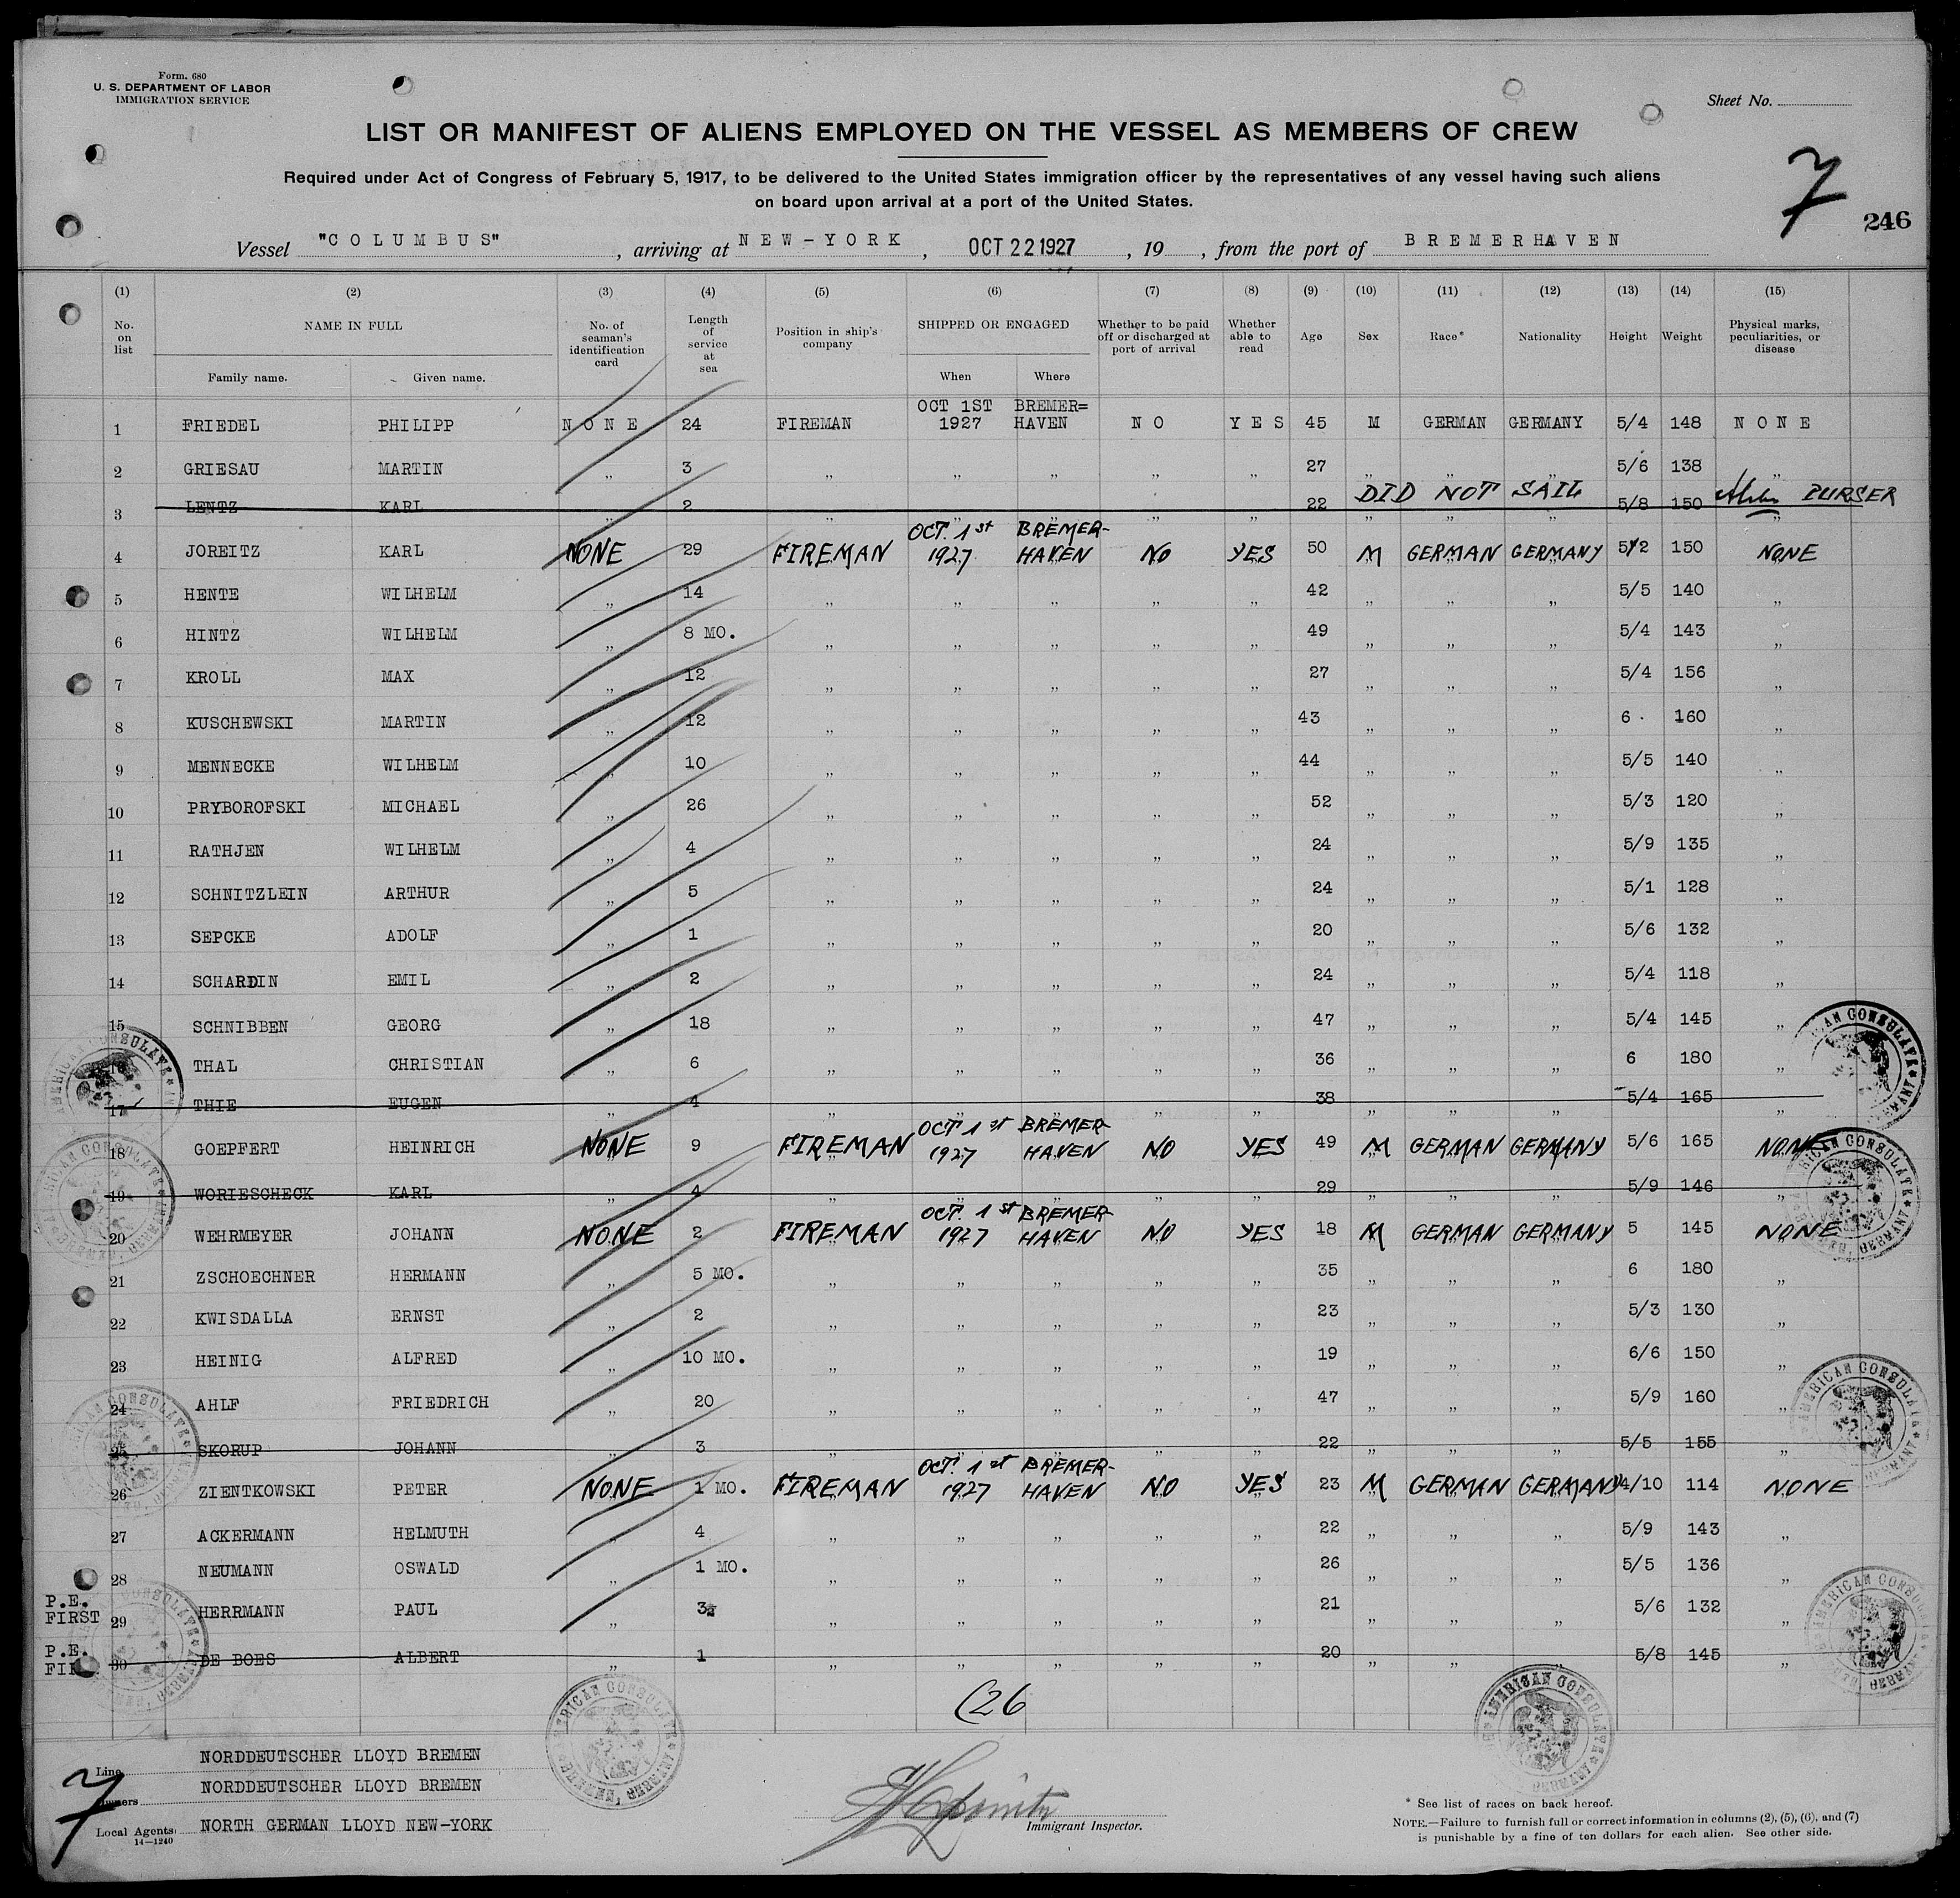 Form. 680
U. S. DEPARTMENT OF LABOR
IMMIGRATION SERVICE
Sheet No.
LIST OR MANIFEST OF ALIENS EMPLOYED ON THE VESSEL AS MEMBERS OF CREW
Required under Act of Congress of February 5, 1917, to be delivered to the United States immigration officer by the representatives of any vessel having such aliens
on board upon arrival at a port of the United States.
7
246
Vessel "COLUMBUS", arriving at NEW-YORK, OCT 22 1927, 19 , from the port of BREMERHAVEN
(1) (2) (3) (4) (5) (6) (7) (8) (9) (10) (11) (12) (13) (14) (15)
No. on list NAME IN FULL Family name. Given name. No. of seaman's identification card Length of service at sea Position in ship's company SHIPPED OR ENGAGED When Where Whether to be paid off or discharged at port of arrival Whether able to read Age Sex Race* Nationality Height Weight Physical marks, peculiarities, or disease
1 FRIEDEL PHILIPP NONE 24 FIREMAN OCT 1ST 1927 BREMER=HAVEN NO YES 45 M GERMAN GERMANY 5/4 148 NONE
2 GRIESAU MARTIN „ 3 „ „ „ „ „ 27 „ „ „ 5/6 138 „
DID NOT SAIL PURSER
3 LENTZ KARL 2 „ „ „ „ „ 22 „ „ „ 5/8 150 „
4 JOREITZ KARL NONE 29 FIREMAN OCT. 1st 1927 BREMER-HAVEN NO YES 50 M GERMAN GERMANY 5/2 150 NONE
5 HENTE WILHELM „ 14 „ „ „ „ „ 42 „ „ „ 5/5 140 „
6 HINTZ WILHELM „ 8 MO. „ „ „ „ „ 49 „ „ „ 5/4 143 „
7 KROLL MAX „ 12 „ „ „ „ „ 27 „ „ „ 5/4 156 „
8 KUSCHEWSKI MARTIN „ 12 „ „ „ „ „ 43 „ „ „ 6 160 „
9 MENNECKE WILHELM „ 10 „ „ „ „ „ 44 „ „ „ 5/5 140 „
10 PRYBOROFSKI MICHAEL 26 „ „ „ „ „ 52 „ „ „ 5/3 120 „
11 RATHJEN WILHELM „ 4 „ „ „ „ „ 24 „ „ „ 5/9 135 „
12 SCHNITZLEIN ARTHUR „ 5 „ „ „ „ „ 24 „ „ „ 5/1 128 „
13 SEPCKE ADOLF „ 1 „ „ „ „ „ 20 „ „ „ 5/6 132 „
14 SCHARDIN EMIL „ 2 „ „ „ „ „ 24 „ „ „ 5/4 118 „
15 SCHNIBBEN GEORG „ 18 „ „ „ „ „ 47 „ „ „ 5/4 145 „
16 THAL CHRISTIAN „ 6 „ „ „ „ „ 36 „ „ „ 6 180 „
17 THIE EUGEN „ 4 „ „ „ „ „ 38 „ „ „ 5/4 165 „
18 GOEPFERT HEINRICH NONE 9 FIREMAN OCT 1st 1927 BREMER-HAVEN NO YES 49 M GERMAN GERMANY 5/6 165 NONE
19 WORIESCHECK KARL „ 4 „ „ „ „ „ 29 „ „ „ 5/9 146 „
20 WEHRMEYER JOHANN NONE 2 FIREMAN OCT. 1st 1927 BREMER-HAVEN NO YES 18 M GERMAN GERMANY 5 145 NONE
21 ZSCHOECHNER HERMANN „ 5 MO. „ „ „ „ „ 35 „ „ „ 6 180 „
22 KWISDALLA ERNST „ 2 „ „ „ „ „ 23 „ „ „ 5/3 130 „
23 HEINIG ALFRED „ 10 MO. „ „ „ „ „ 19 „ „ „ 6/6 150 „
24 AHLF FRIEDRICH „ 20 „ „ „ „ „ 47 „ „ „ 5/9 160 „
25 SKORUP JOHANN „ 3 „ „ „ „ „ 22 „ „ „ 5/5 155 „
26 ZIENTKOWSKI PETER NONE 1 MO. FIREMAN OCT. 1st 1927 BREMER-HAVEN NO YES 23 M GERMAN GERMANY 4/10 114 NONE
27 ACKERMANN HELMUTH 4 „ „ „ „ „ 22 „ „ „ 5/9 143 „
28 NEUMANN OSWALD „ 1 MO. „ „ „ „ „ 26 „ „ „ 5/5 136 „
P.E. FIRST 29 HERRMANN PAUL „ 3 „ „ „ „ „ 21 „ „ „ 5/6 132 „
P.E. 30 DE BOES ALBERT „ 1 „ „ „ „ „ 20 „ „ „ 5/8 145 „
(26
AMERICAN CONSULATE
Line NORDDEUTSCHER LLOYD BREMEN
Owners NORDDEUTSCHER LLOYD BREMEN
Local Agents NORTH GERMAN LLOYD NEW-YORK
14—1240
7
Immigrant Inspector.
* See list of races on back hereof.
NOTE.—Failure to furnish full or correct information in columns (2), (5), (6), and (7)
is punishable by a fine of ten dollars for each alien. See other side.